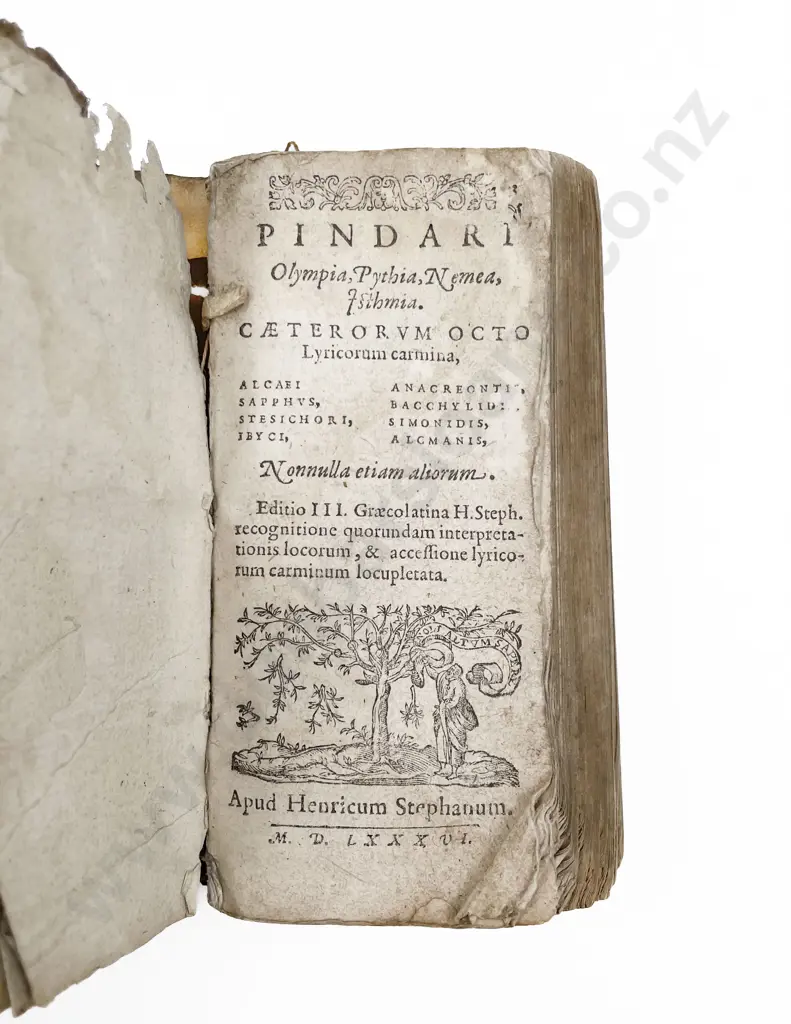 PINDARI
Olympia, Pythia, Nemea,
Isthmia.
CÆTERORVM OCTO
Lyricorum carmina,
ALCAEI
SAPPHVS,
STESICHORI,
IBYCI,
ANACREONTIS,
BACCHYLIDIS,
SIMONIDIS,
ALCMANIS,
Nonnulla etiam aliorum.
Editio III. Græcolatina H. Steph.
recognitione quorundam interpreta-
tionis locorum, & accessione lyrico-
rum carminum locupletata.
NOLI ALTVM SAPERE
Apud Henricum Stephanum.
M. D. LXXXVI.
co.nz